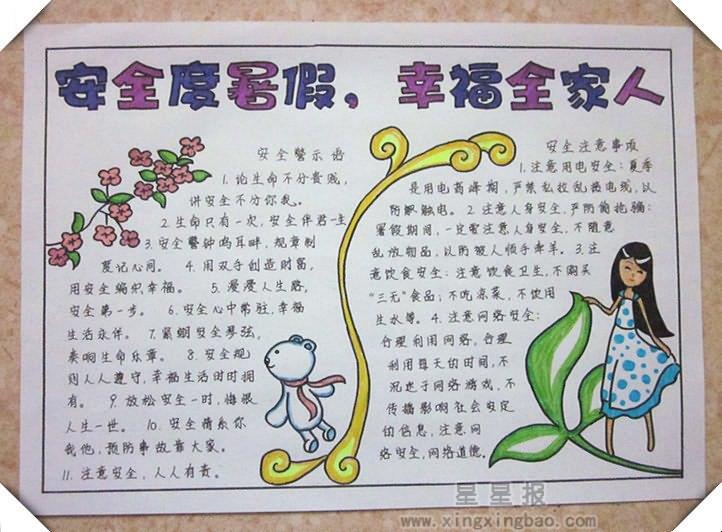 安全度暑假，幸福全家人
安全警示语
1.论生命不分贵贱，
讲安全不分你我。
2.生命只有一次，安全伴君一生
3.安全警钟鸣耳畔，规章制
度记心间。 4.用双手创造财富，
用安全编织幸福。 5.漫漫人生路，
安全第一步。 6.安全心中常驻，幸福
生活永伴。 7.紧绷安全琴弦，
奏响生命乐章。 8.安全规
则人人遵守，幸福生活时时拥
有。 9.放松安全一时，悔恨
人生一世。 10.安全情系你
我他，预防事故靠大家。
11.注意安全，人人有责。
安全注意事项
1.注意用电安全：夏季
是用电高峰期，严禁私拉乱接电线，以
防触电。2.注意人身安全，严防偷抢骗：
暑假期间，一定要注意人身安全，不随意
乱放物品，以防被人顺手牵羊。3.注
意饮食安全：注意饮食卫生，不购买
“三无”食品；不吃凉菜，不饮用
生水等。4.注意网络安全：
合理利用网络，合理
利用每天的时间，不
沉迷于网络游戏，不
传播影响社会安定
的信息，注意网
络安全，网络道德。
星星报
www.xingxingbao.com